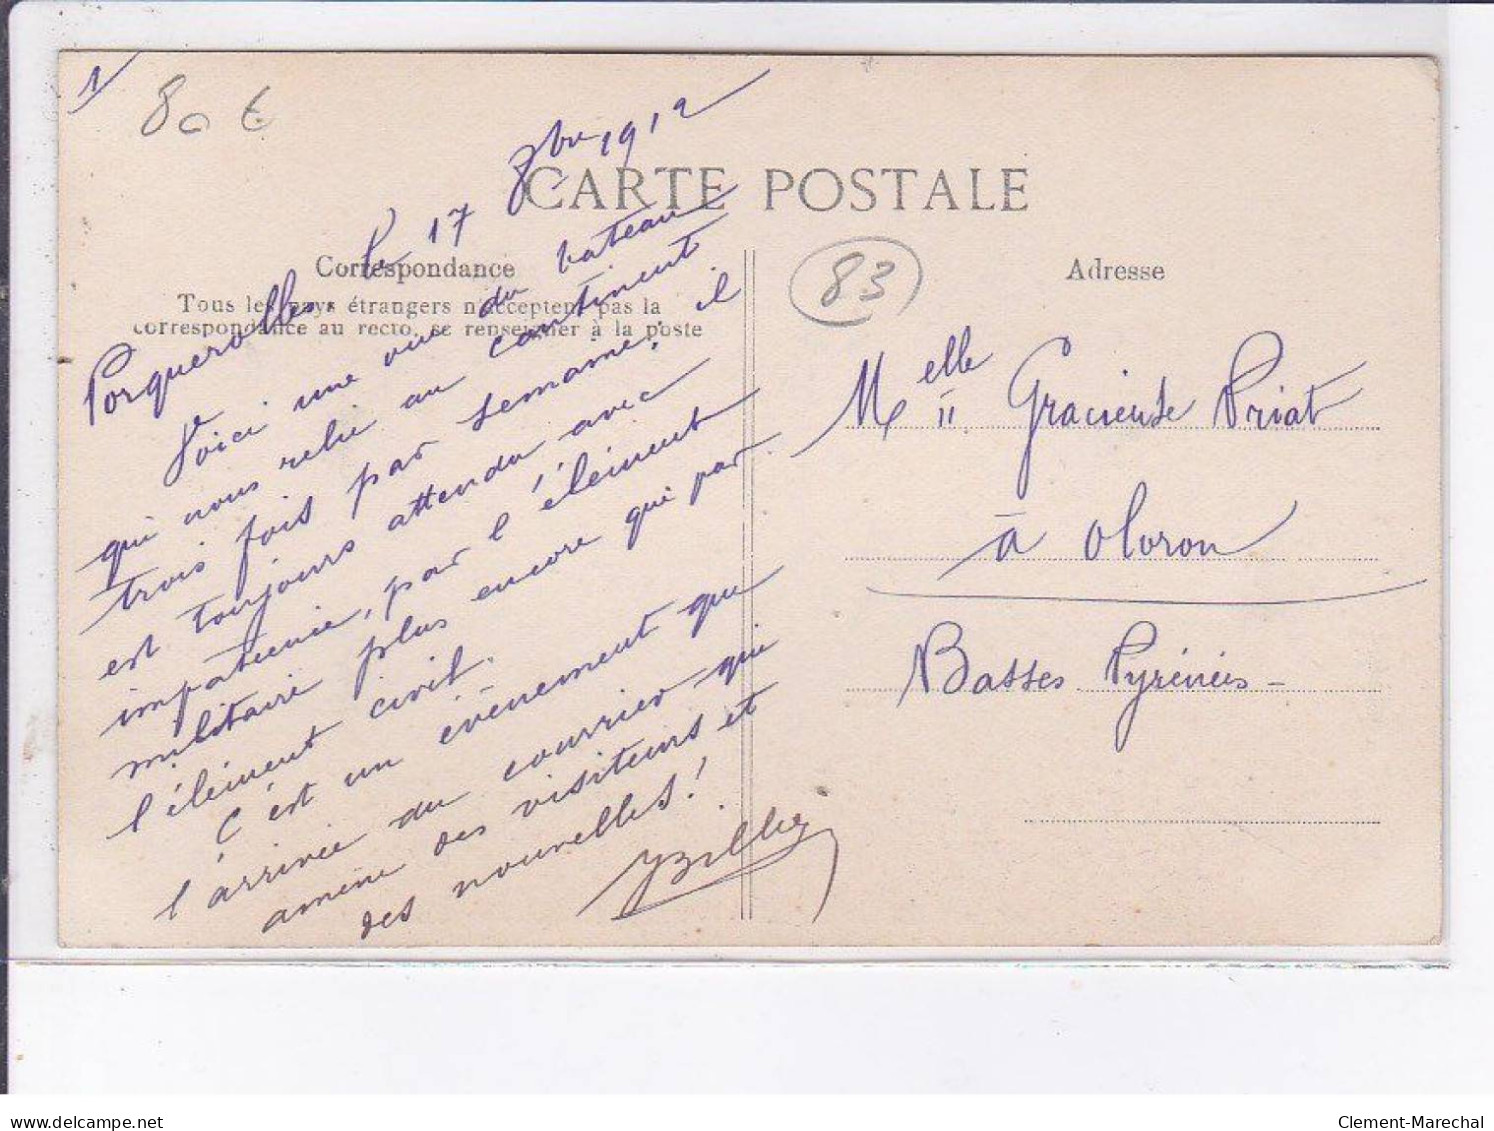 1/
80 €
CARTE POSTALE
Correspondance
Tous les pays étrangers n'acceptent pas la
correspondance au recto, se renseigner à la poste
Porquerolles, le 17 9bre 1912
Voici une vue du bateau
qui nous relie au continent
trois fois par semaine; il
est toujours attendu avec
impatience, par l'élément
militaire plus encore que par
l'élément civil.
C'est un événement que
l'arrivée du courrier qui
amène des visiteurs et
des nouvelles!
83
Adresse
Melle Gracieuse Priat
à Oloron
Basses Pyrénées-
delcampe.net
Clement-Marechal